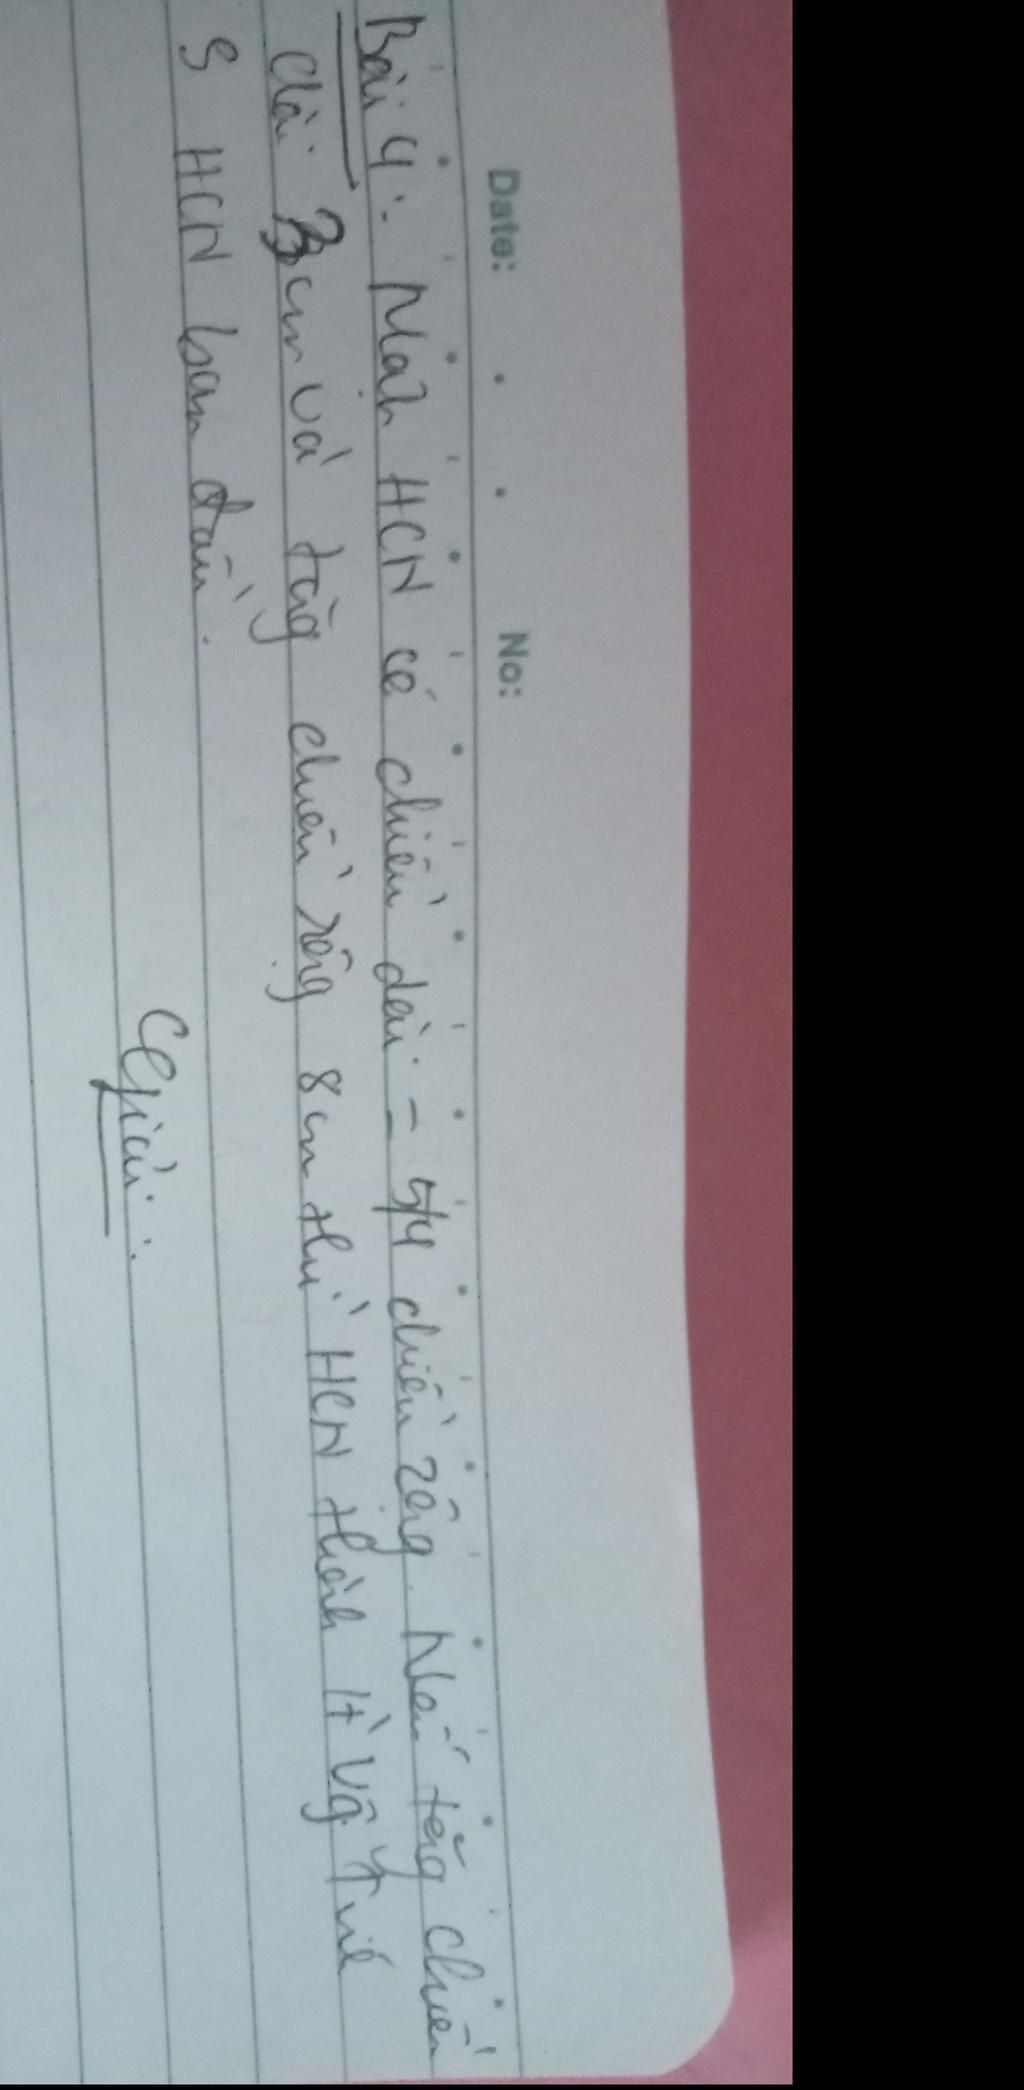 Date: No:
Bài 4: Mảnh HCN có chiều dài = 5/4 chiều rộng. Nếu tăng chiều
dài 3cm và tăng chiều rộng 8cm thì HCN thành H vg
S HCN ban đầu.
Giải: